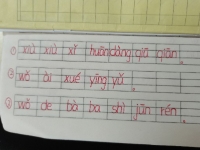 ① xiù xiù xǐ huān dòng qiā qiān.
② wǒ ài xué yīng yǔ.
③ wǒ de bà ba shì jūn rén.